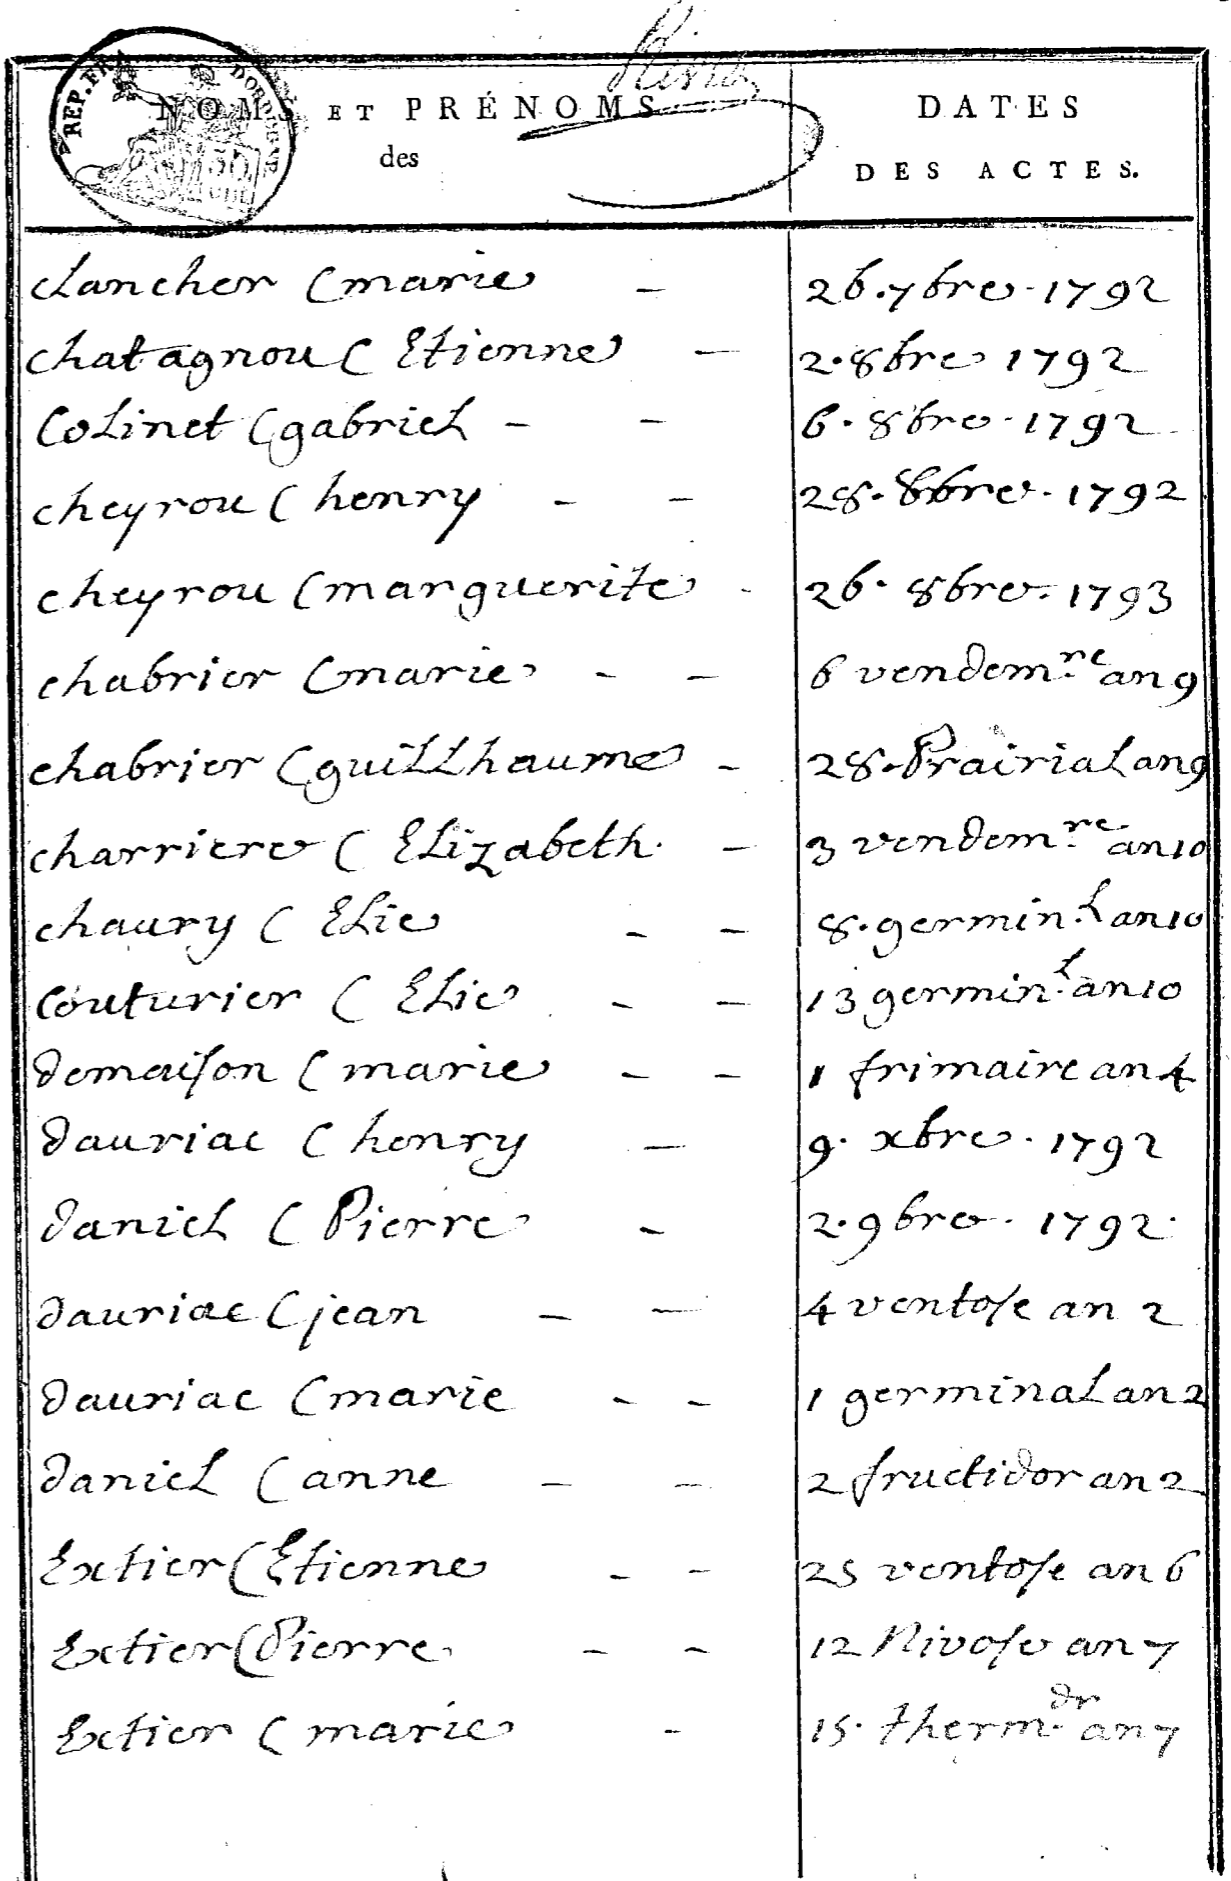 REP. FRA DORDOGNE
NOMS ET PRÉNOMS
des
DATES
DES ACTES.
clancher (marie — 26. 7bre. 1792
chatagnou ( Etienne — 2. 8bre 1792
Colinet (gabriel - - 6. 8bre. 1792
cheyrou ( henry - - 28. 8bre. 1792
cheyrou (marguerite - 26. 8bre. 1793
chabrier (marie - - 6 vendem.re an 9
chabrier (guillhaume - 28. Prairial an 9
charriere ( Elizabeth. - 3 vendem.re an 10
chaury ( Elie - - 8. germin.l an 10
Couturier ( Elie - - 13 germin.l an 10
demaiſon ( marie - - 1 frimaire an 4
dauriac ( henry — 9. xbre. 1792
daniel ( Pierre - 2. 9bre. 1792.
dauriac (jean - — 4 ventoſe an 2
dauriac (marie - - 1 germinal an 2
daniel (anne - - 2 fructidor an 2
Extier (Etienne - - 25 ventoſe an 6
Extier (Pierre - - 12 Nivoſe an 7
Extier ( marie - 15. therm.dr an 7